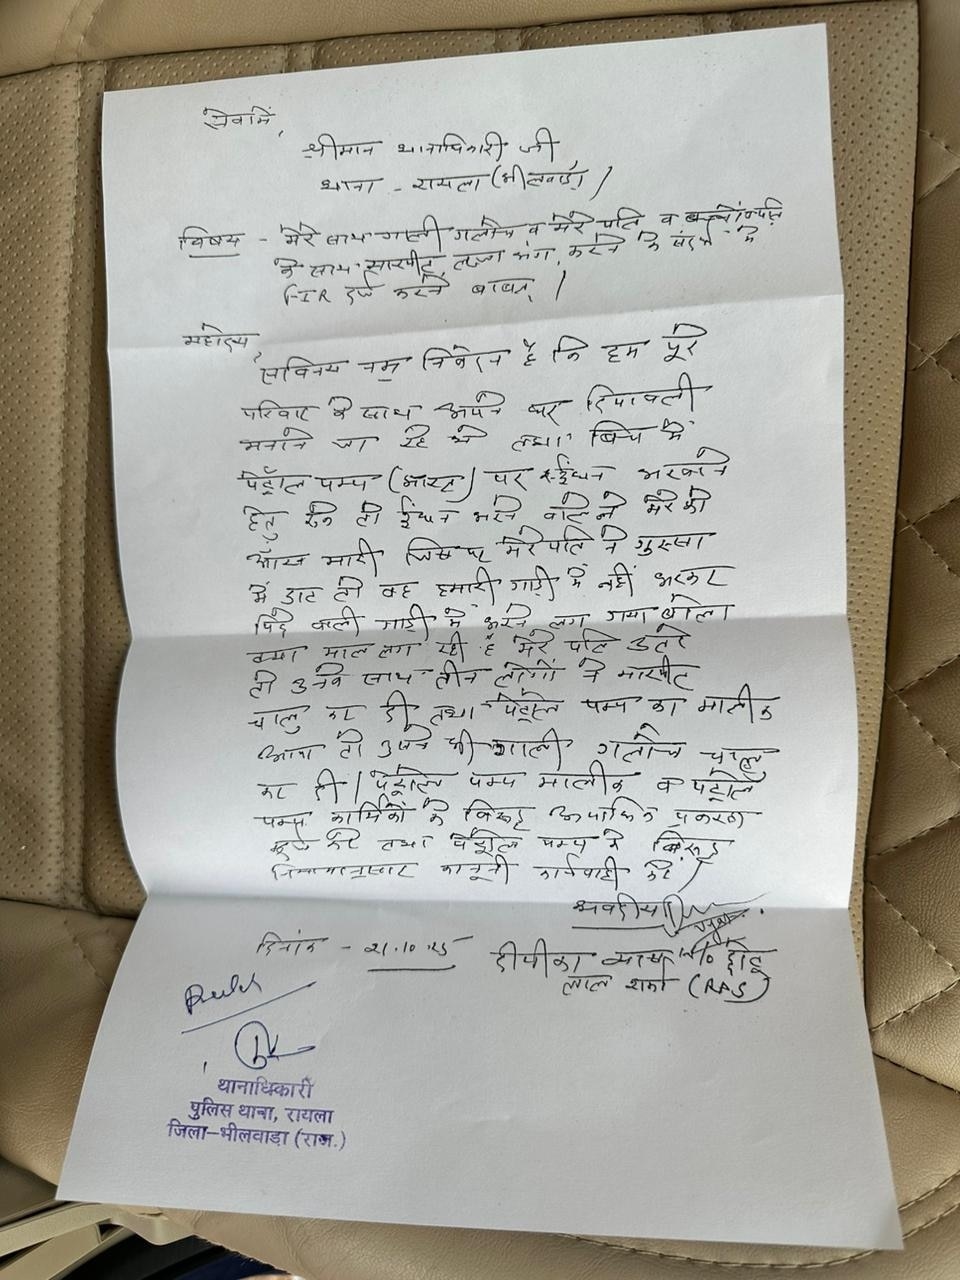 सेवामें,
श्रीमान थानाधिकारी जी
थाना - रायला (भीलवाडा)।
विषय - मेरे साथ गाली गलौच व मेरे पति व
के साथ मारपीट, लज्जा भंग, करने के संदर्भ में
FIR दर्ज करने बाबत्।
महोदय,
सविनय नम्र निवेदन है कि हम पूरे
परिवार के साथ अपने घर दिपावली
मनाने जा रहे थे तथा बिच में
पेट्रोल पम्प पर ईंधन भरवाने
हेतु रुके तो ईंधन भरने वाले ने मेरे को
आँख मारी जिस पर मेरे पति ने गुस्सा
में डाट तो वह हमारी गाड़ी में नहीं भरकर
पिछे वाली गाड़ी में भरने लग गया बोला
क्या माल लग रही है मेरे पति उतरे
तो उनके साथ तीन लोगों ने मारपीट
चालु कर दी तथा पेट्रोल पम्प का मालीक
आया तो उसने भी गाली गलौच चालु
कर दी। पेट्रोल पम्प मालीक व पेट्रोल
पम्प कार्मिकों के विरूद्ध अपराधिक प्रकरण
दर्ज करे तथा पेट्रोल पम्प के विरूद्ध
नियमानुसार कानूनी कार्यवाही करे।
भवदीय
दिनांक - 21.10.25
दीपीका व्यास W/o छोटू
लाल शर्मा (RAS)
थानाधिकारी
पुलिस थाना, रायला
जिला-भीलवाडा (राज.)